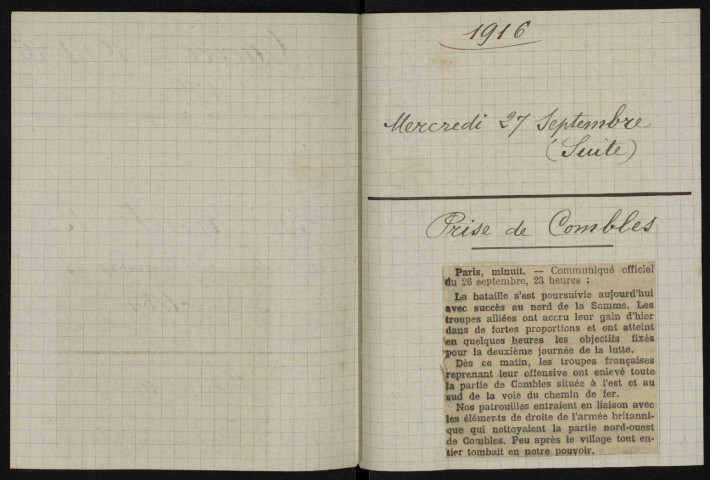 1916
Mercredi 27 Septembre
(Suite)
Prise de Combles
Paris, minuit. — Communiqué officiel
du 26 septembre, 23 heures :
La bataille s'est poursuivie aujourd'hui
avec succès au nord de la Somme. Les
troupes alliées ont accru leur gain d'hier
dans de fortes proportions et ont atteint
en quelques heures les objectifs fixés
pour la deuxième journée de la lutte.
Dès ce matin, les troupes françaises
reprenant leur offensive ont enlevé toute
la partie de Combles située à l'est et au
sud de la voie du chemin de fer.
Nos patrouilles entraient en liaison avec
les éléments de droite de l'armée britanni-
que qui nettoyaient la partie nord-ouest
de Combles. Peu après le village tout en-
tier tombait en notre pouvoir.